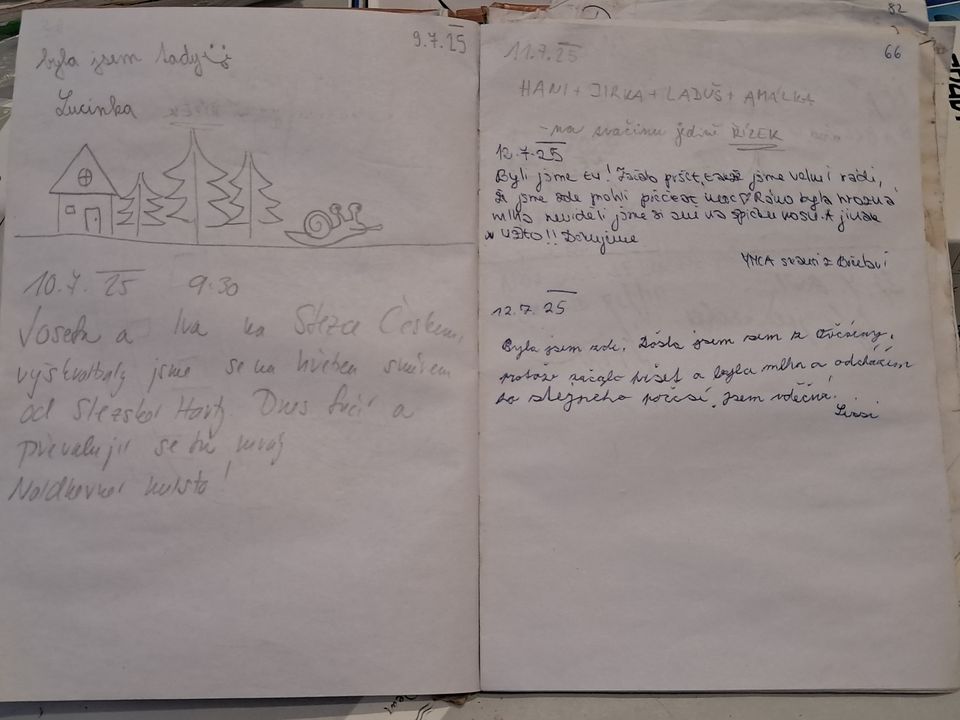 9.7.25
byla jsem tady
Lucinka
10.7. 25 9:30
a Iva na Stezce Českem,
jsme se na
od Slezské Harty Dnes fučí a
převalují se tu mraky
Nádherné místo!
82
66
11.7.25
HANI + JIRKA + LADUŠ + AMÁLKA
- na svačinu jedině ŘÍZEK
12.7.25
Byli jsme tu! Začalo pršet, takže jsme velmi rádi,
že jsme zde mohli přečkat noc Ráno byla hrozná
mlha neviděli jsme si ani na špičku nosu. A jinak
to!! Děkujeme
YMCA z
12.7. 25
Byla jsem zde. Došla jsem sem z
protože začalo pršet a byla mlha a odcházím
do stejného počasí, jsem vděčná!